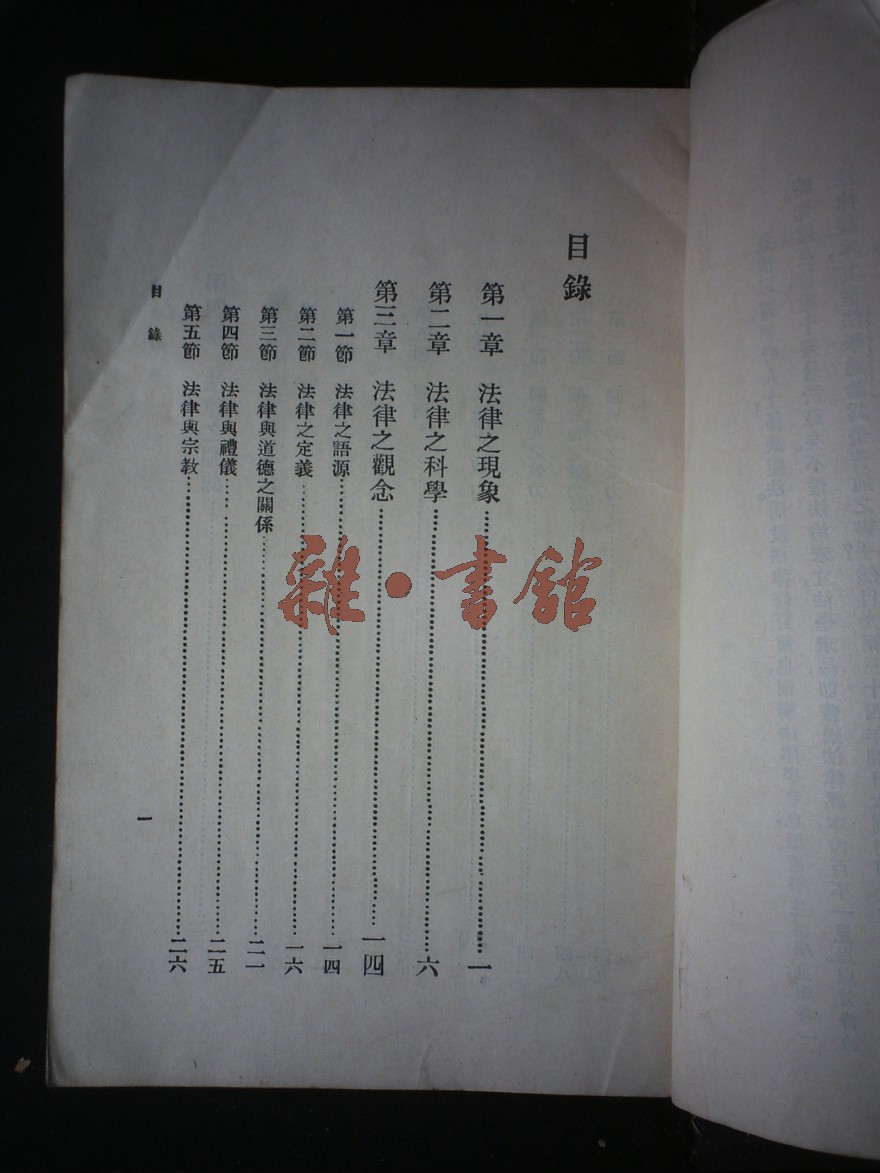 目錄
第一章 法律之現象……一
第二章 法律之科學……六
第三章 法律之觀念……一四
第一節 法律之語源……一四
第二節 法律之定義……一六
第三節 法律與道德之關係……二一
第四節 法律與禮儀……二五
第五節 法律與宗教……二六
目錄
一
雜·書館